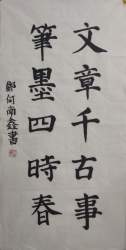 文章千古事
筆墨四時春
鄭何南鑫書